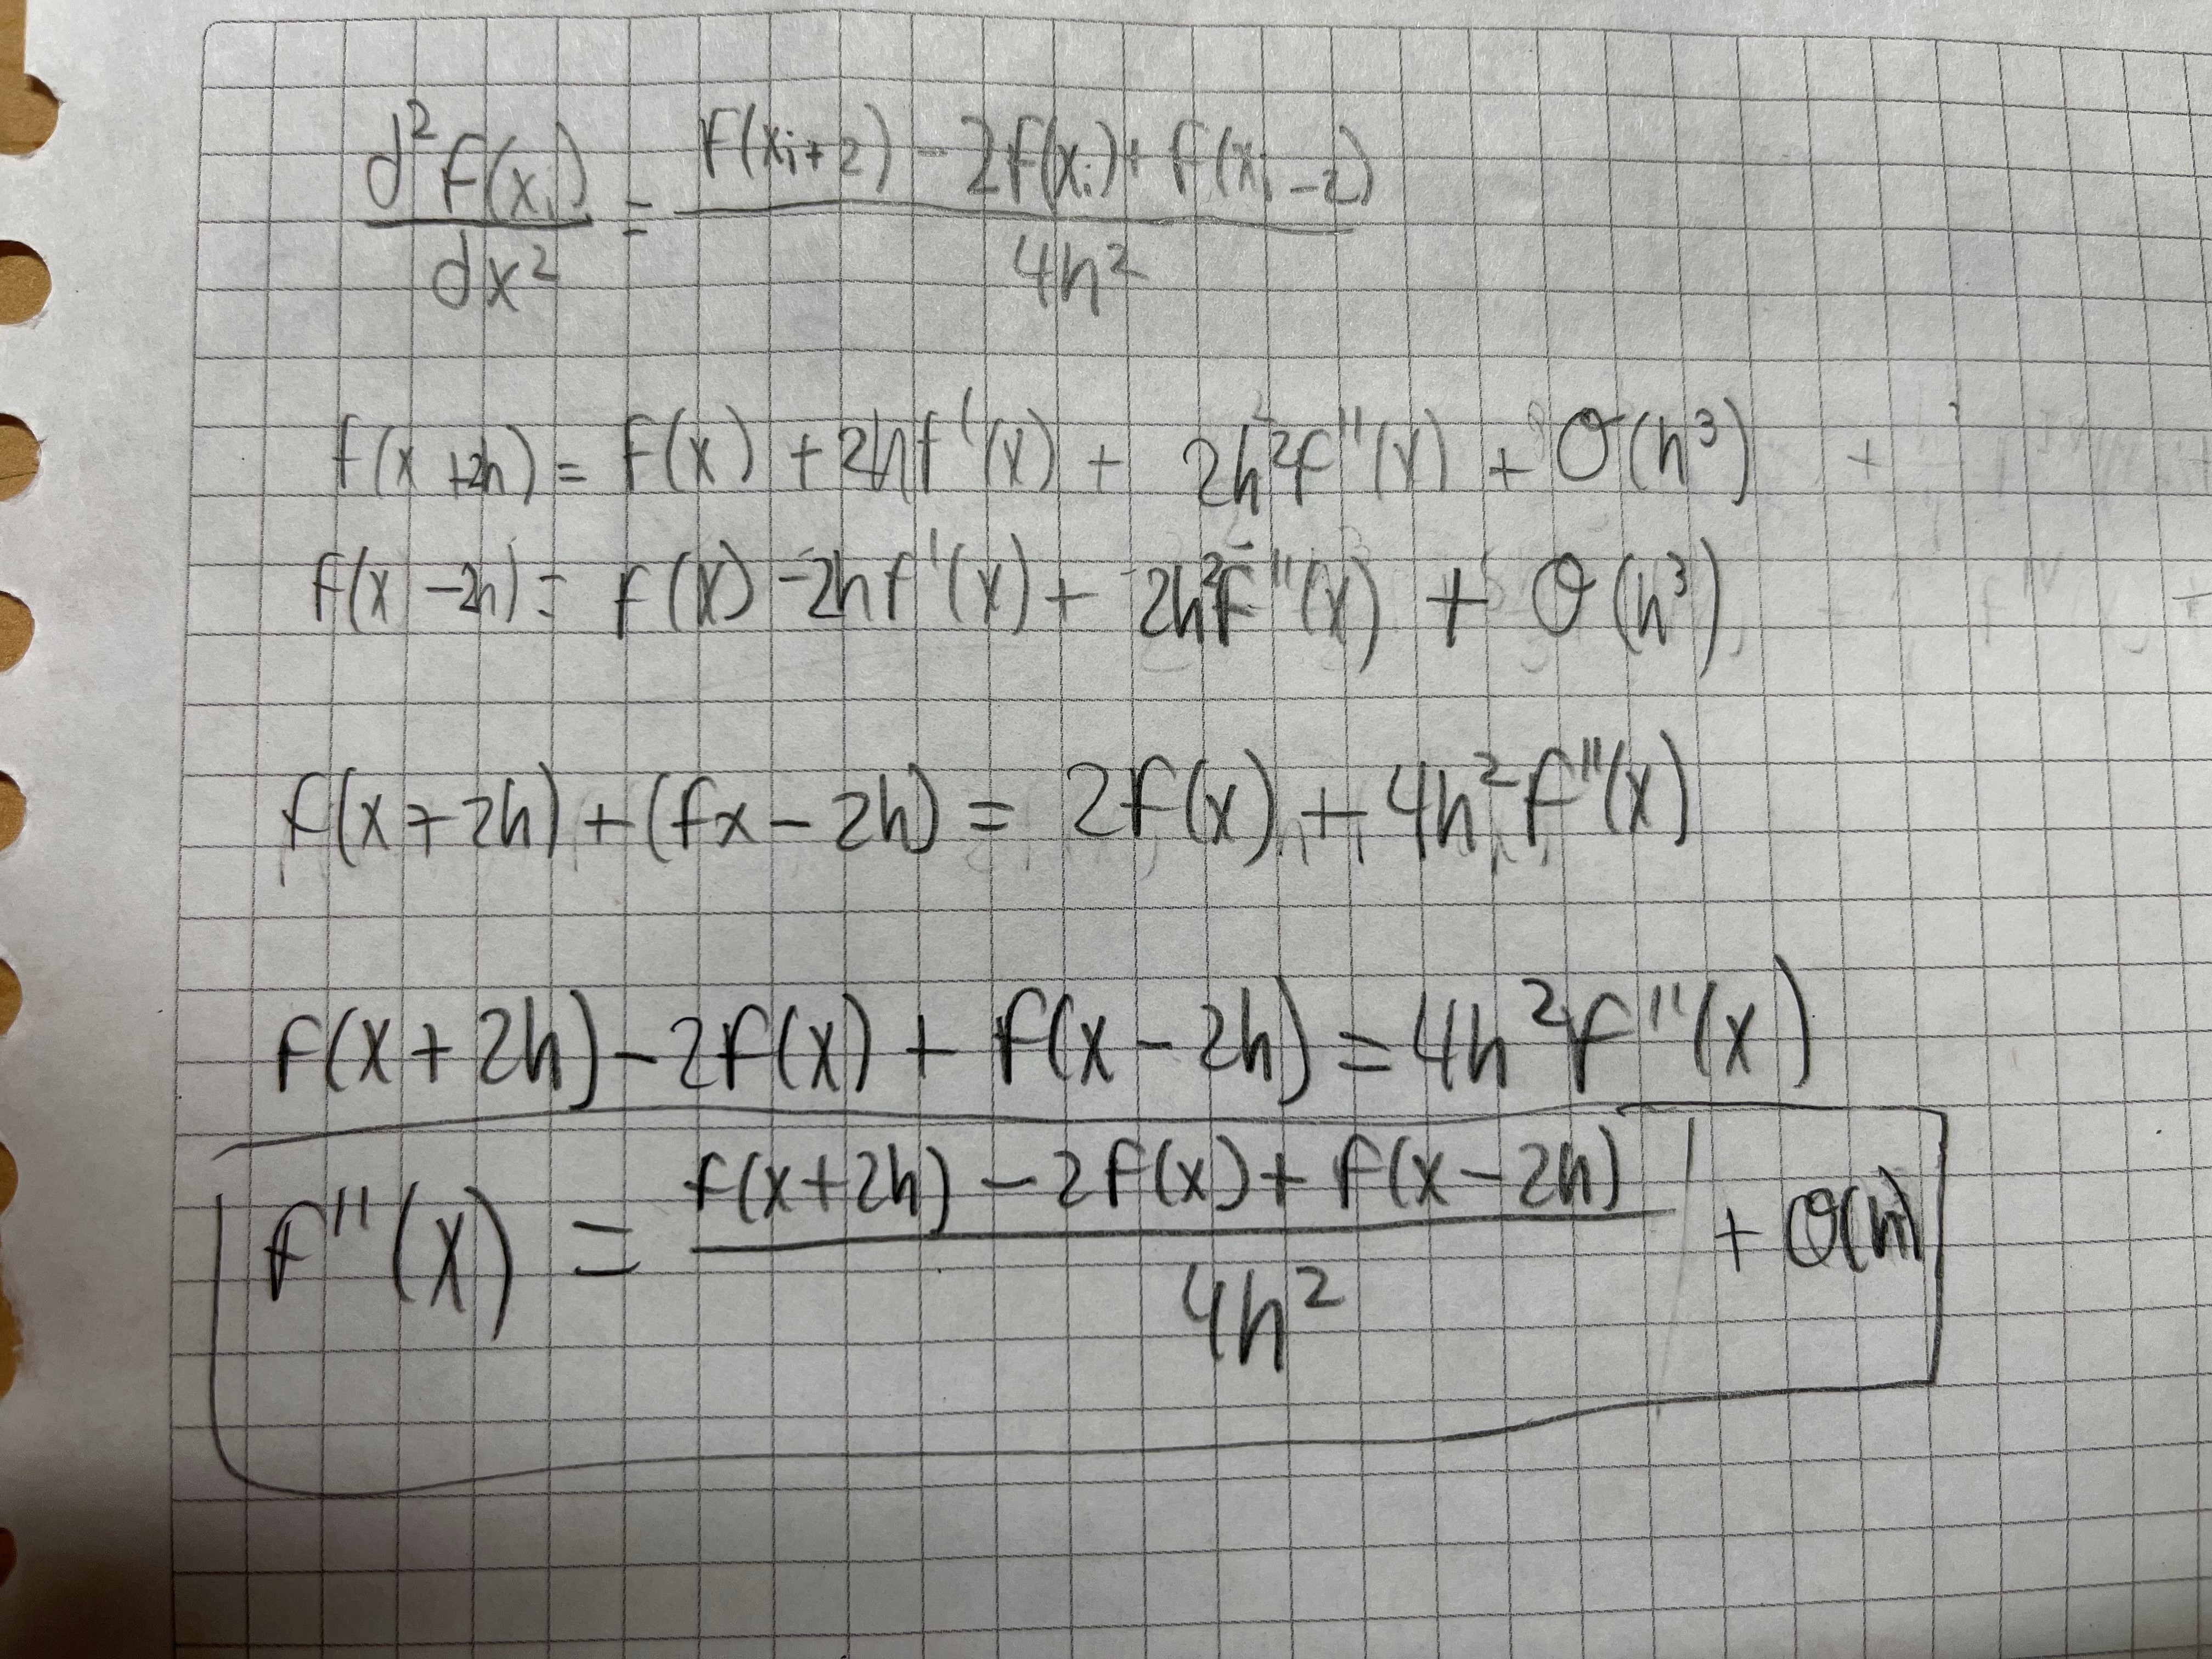 d²f(xᵢ)/dx² = (f(xᵢ+2) - 2f(xᵢ) + f(xᵢ-2))/4h²
f(x+2h) = f(x) + 2hf'(x) + 2h²f''(x) + O(h³) +
f(x-2h) = f(x) - 2hf'(x) + 2h²f''(x) + O(h³)
f(x+2h) + (fx-2h) = 2f(x) + 4h²f''(x)
f(x+2h) - 2f(x) + f(x-2h) = 4h²f''(x)
f''(x) = (f(x+2h) - 2f(x) + f(x-2h))/4h² + O(h)